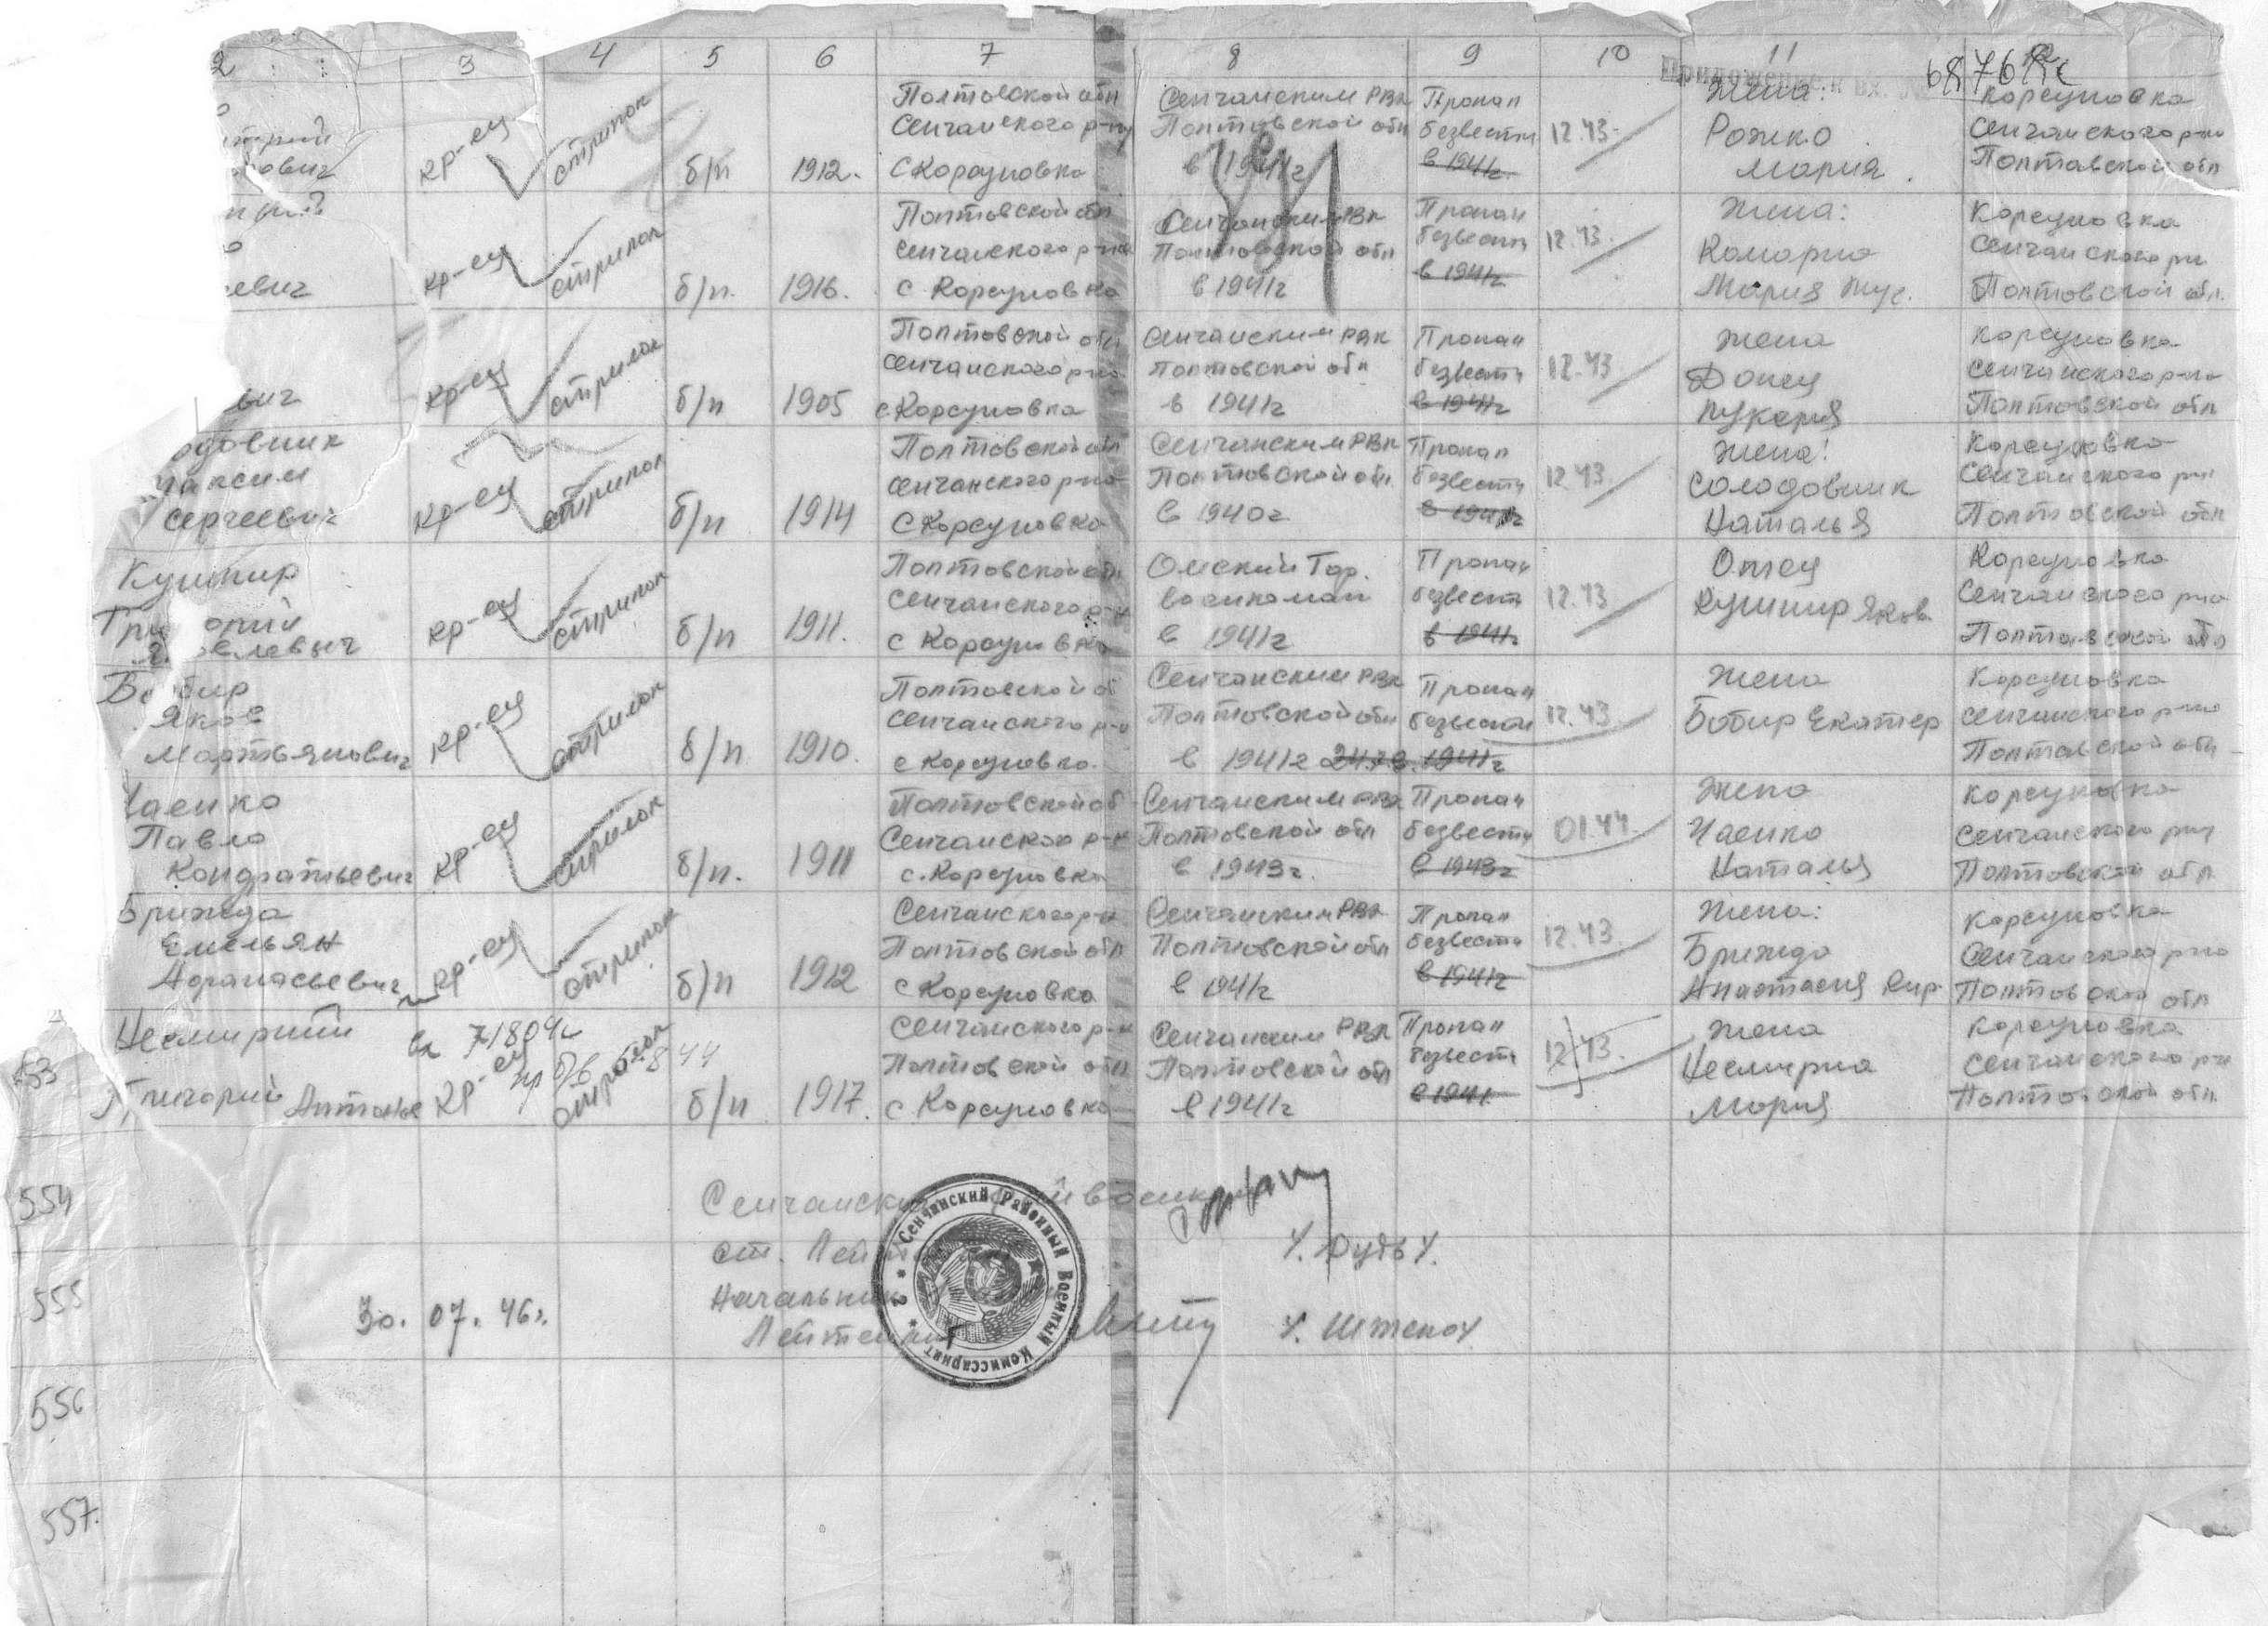 2 3 4 5 6 7 8 9 10 11 12
Приложение к вх. № 68761с
кр-ец стрилок б/п 1912. Полтовской обл Сенчанского р-ну С Корсуновка Сенчанским РВК Полтовской обл в 1941г Пропал безвести в 1941г. 12.43. Жена: Рожко Мария. Корсуновка Сенчанского р-на Полтавской обл
евич кр-ец стрилок б/п. 1916. Полтовской обл Сенчанского р-на с. Корсуновка Сенчанским РВК Полтовской обл в 1941г Пропал безвести в 1941г 12.43. Жена: Комарно Мария Корсуновка Сенчанского рн Полтовской обл.
вич кр-ец стрилок б/п 1905 Полтовской обл Сенчанского р-на с Корсуновка Сенчанским РВК Полтовской обл в 1941г Пропал безвести в 1941г 12.43 Жена Донец Лукерия Корсуновка Сенчанского р-на Полтовской обл
одовник Максим Сергеевич кр-ец стрилок б/п 1914 Полтовской обл Сенчанского р-на С Корсуновка Сенчанским РВК Полтовской обл. в 1940г Пропал безвести в 1941г 12.43. Жена: Солодовник Наталья Корсуновка Сенчанского рн Полтовской обл
Кушнир Григорий Яковлевич кр-ец стрилок б/п 1911. Полтовской обл Сенчанского р-н с Корсуновка Омский Гор. военкомат в 1941г Пропал безвести в 1941г 12.43 Отец Кушнир Яков Корсуновка Сенчанского р-на Полтавской обл
Бобир Яков Мартьянович кр-ец стрилок б/п 1910. Полтовской об Сенчанского р-н с Корсуновка. Сенчанским РВК Полтовской обл в 1941г Пропал безвести 1941г 12.43. Жена Бобир Екатер Корсуновка Сенчанского р-на Полтавской обл
Чаенко Павло Кондратьевич кр-ец стрилок б/п. 1911 Полтовской об Сенчанского р-н с. Корсуновка Сенчанским РВК Полтовской обл в 1943г. Пропал безвести в 1943г 01.44. Жена Чаенко Наталья Корсуновка Сенчанского рну Полтовской обл
Брижда Емельян Афанасьевич кр-ец стрилок б/п 1912 Сенчанского р-н Полтовской обл с Корсуновка Сенчанским РВК Полтовской обл в 1941г Пропал безвести в 1941г 12.43. Жена: Брижда Анастасия Кир. Корсуновка Сенчанского р-на Полтовской обл
553 Несмирний Григорий Антонов вх 71809с кр-ец пр б/в 8 44 стрилок б/п 1917. Сенчанского р-н Полтовской обл с Корсуновка Сенчанским РВК Полтовской обл в 1941г Пропал безвести в 1941 12.43. Жена Несмирна Мария Корсуновка Сенчанского рн Полтовской обл.
554
Сенчански
ст. Лейт
/. Рудь /.
555
Начальник
30. 07. 46г.
Лейтенант
Сенчанский Районный Военный Комиссариат
* 2 *
556
557.